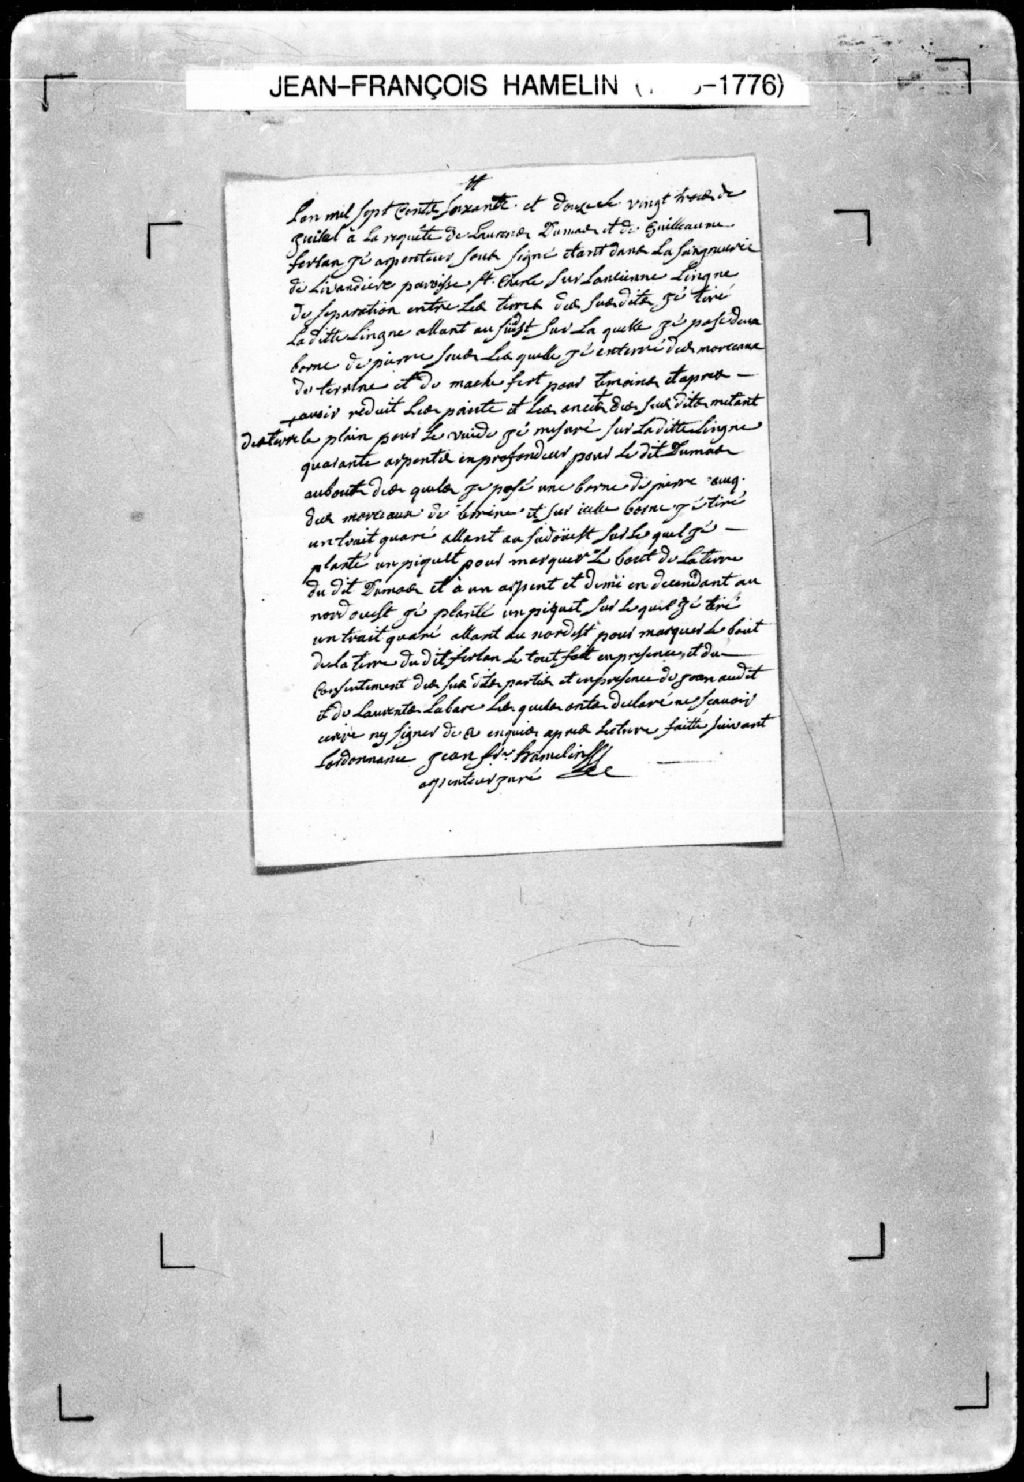 JEAN-FRANÇOIS HAMELIN ( -1776)
Lan mil sept cents soixante et douze le vingt trois de
Juillet à la requête de Laurens Dumas et de Guilleaume
ferlan Jé arpenteur sous signé etant dans la Saingneurie
de Livaudiere paroisse St. Charle sur Lancienne Lingne
de separation entre les terres des sus dits Jé tiré
La ditte Lingne allant au sudest sur La quelle Jé posé deux
borne de pierre sous Les quelle Jé enterré des morceaux
de terrine et de mache fert pour temoins et apres —
avoir reduit Les pointe et Les des sus dits metant
des terre le plain pour Le vuide Jé mesuré sur La ditte Lingne
quarante arpents en profondeur pour Le dit Dumas
aubouts des quels Je posé une borne de pierre avecq
des morceaux de terrine et sur icelle borne Jé tiré
un trait quaré allant au sudoüest sur Le quel Jé —
planté un piquet pour marquer Le bout de La terre
du dit Dumas et à un arpent et demi en decendant au
nord ouest Jé planté un piquet sur Le quel Jé tiré
un trait quaré allant au nordest pour marquer Le bout
de la terre du dit ferlan Le tout fait en presence et du —
consentement des sus dits partis et en presence de Jean audet
et de Laurents Labare Les quels onts declaré ne scavoir
ecrire ny signer de ce enquis apres Lecture faitte suivant
Lordonnance Jean frs. hamelin
arpenteur juré